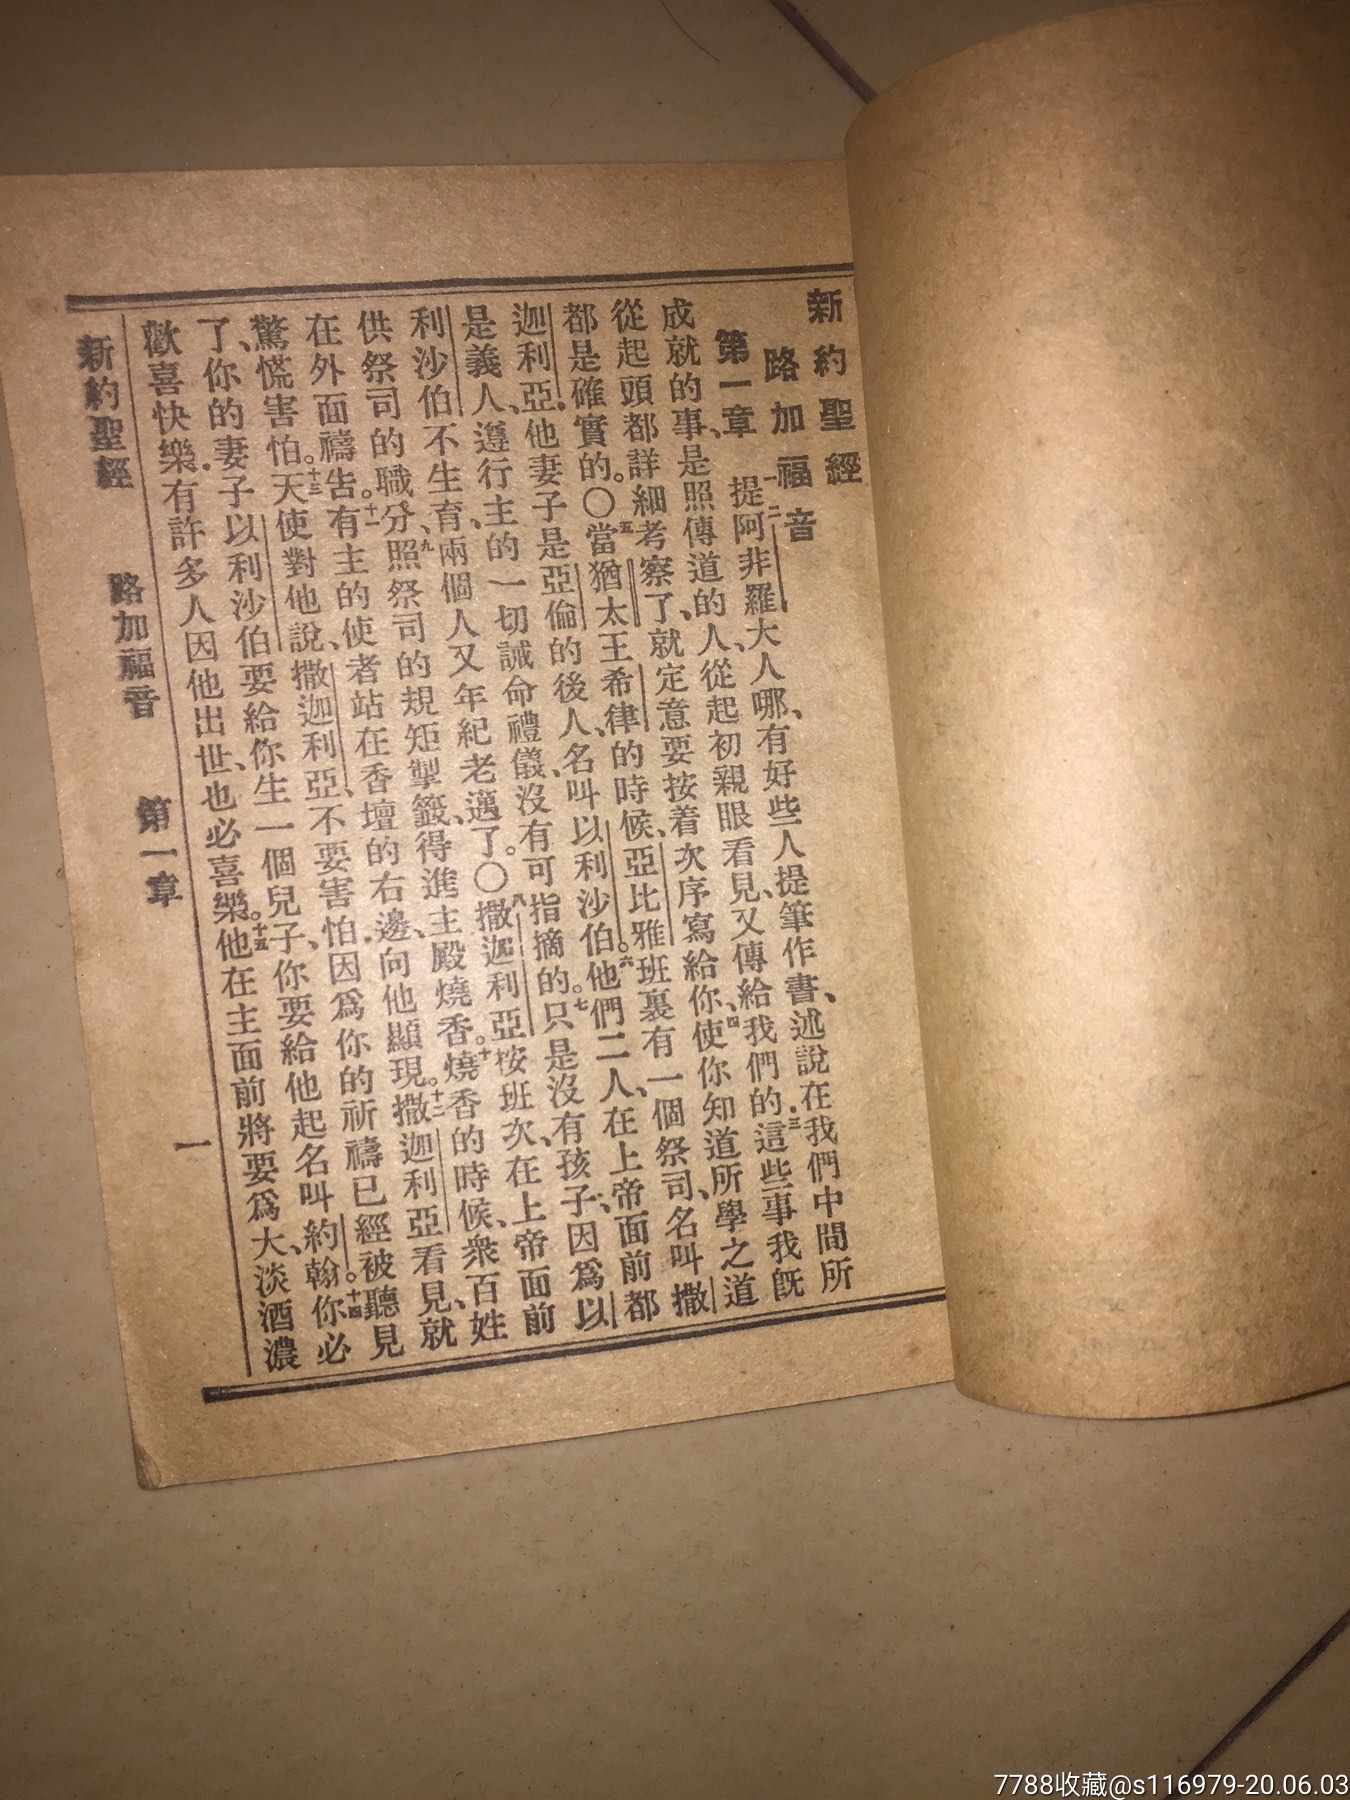 新約聖經
路加福音
第一章 一二提阿非羅大人哪、有好些人提筆作書、述說在我們中間所
成就的事、是照傳道的人、從起初親眼看見、又傳給我們的.三這些事我旣
從起頭都詳細考察了、就定意要按着次序寫給你、四使你知道所學之道
都是確實的。○五當猶太王希律的時候、亞比雅班裏有一個祭司、名叫撒
迦利亞.他妻子是亞倫的後人、名叫以利沙伯。六他們二人、在上帝面前都
是義人、遵行主的一切誡命禮儀、沒有可指摘的。七只是沒有孩子、因爲以
利沙伯不生育、兩個人又年紀老邁了。○八撒迦利亞按班次、在上帝面前
供祭司的職分、九照祭司的規矩掣籤、得進主殿燒香。十燒香的時候、衆百姓
在外面禱告。十一有主的使者站在香壇的右邊、向他顯現。十二撒迦利亞看見、就
驚慌害怕。十三天使對他說、撒迦利亞、不要害怕.因爲你的祈禱已經被聽見
了、你的妻子以利沙伯要給你生一個兒子、你要給他起名叫約翰。十四你必
歡喜快樂.有許多人因他出世、也必喜樂。十五他在主面前將要爲大、淡酒濃
新約聖經 路加福音 第一章 一
7788收藏@s116979-20.06.03